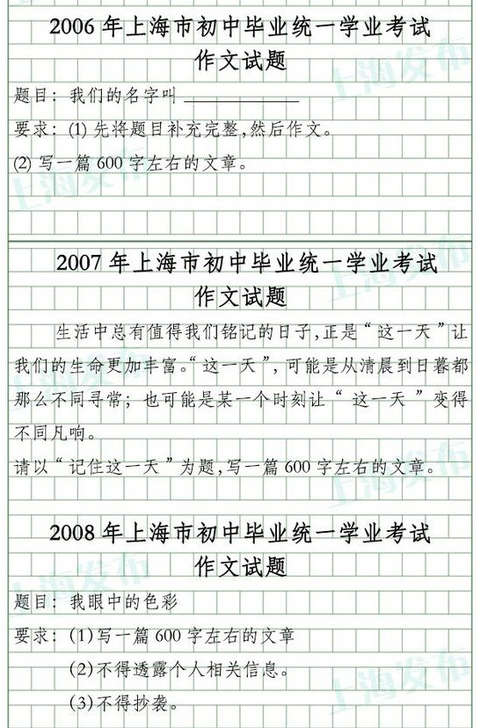 2006 年上海市初中毕业统一学业考试
作文试题
题目：我们的名字叫 ____________
要求：(1) 先将题目补充完整,然后作文。
(2) 写一篇 600 字左右的文章。
2007 年上海市初中毕业统一学业考试
作文试题
生活中总有值得我们铭记的日子,正是“这一天”让
我们的生命更加丰富。“这一天”，可能是从清晨到日暮都
那么不同寻常；也可能是某一个时刻让“这一天”变得
不同凡响。
请以“记住这一天”为题,写一篇 600 字左右的文章。
2008 年上海市初中毕业统一学业考试
作文试题
题目：我眼中的色彩
要求：(1)写一篇 600 字左右的文章
(2)不得透露个人相关信息。
(3)不得抄袭。
上海发布
上海发布
上海发布
上海发布
上海发布
上海发布
上海发布